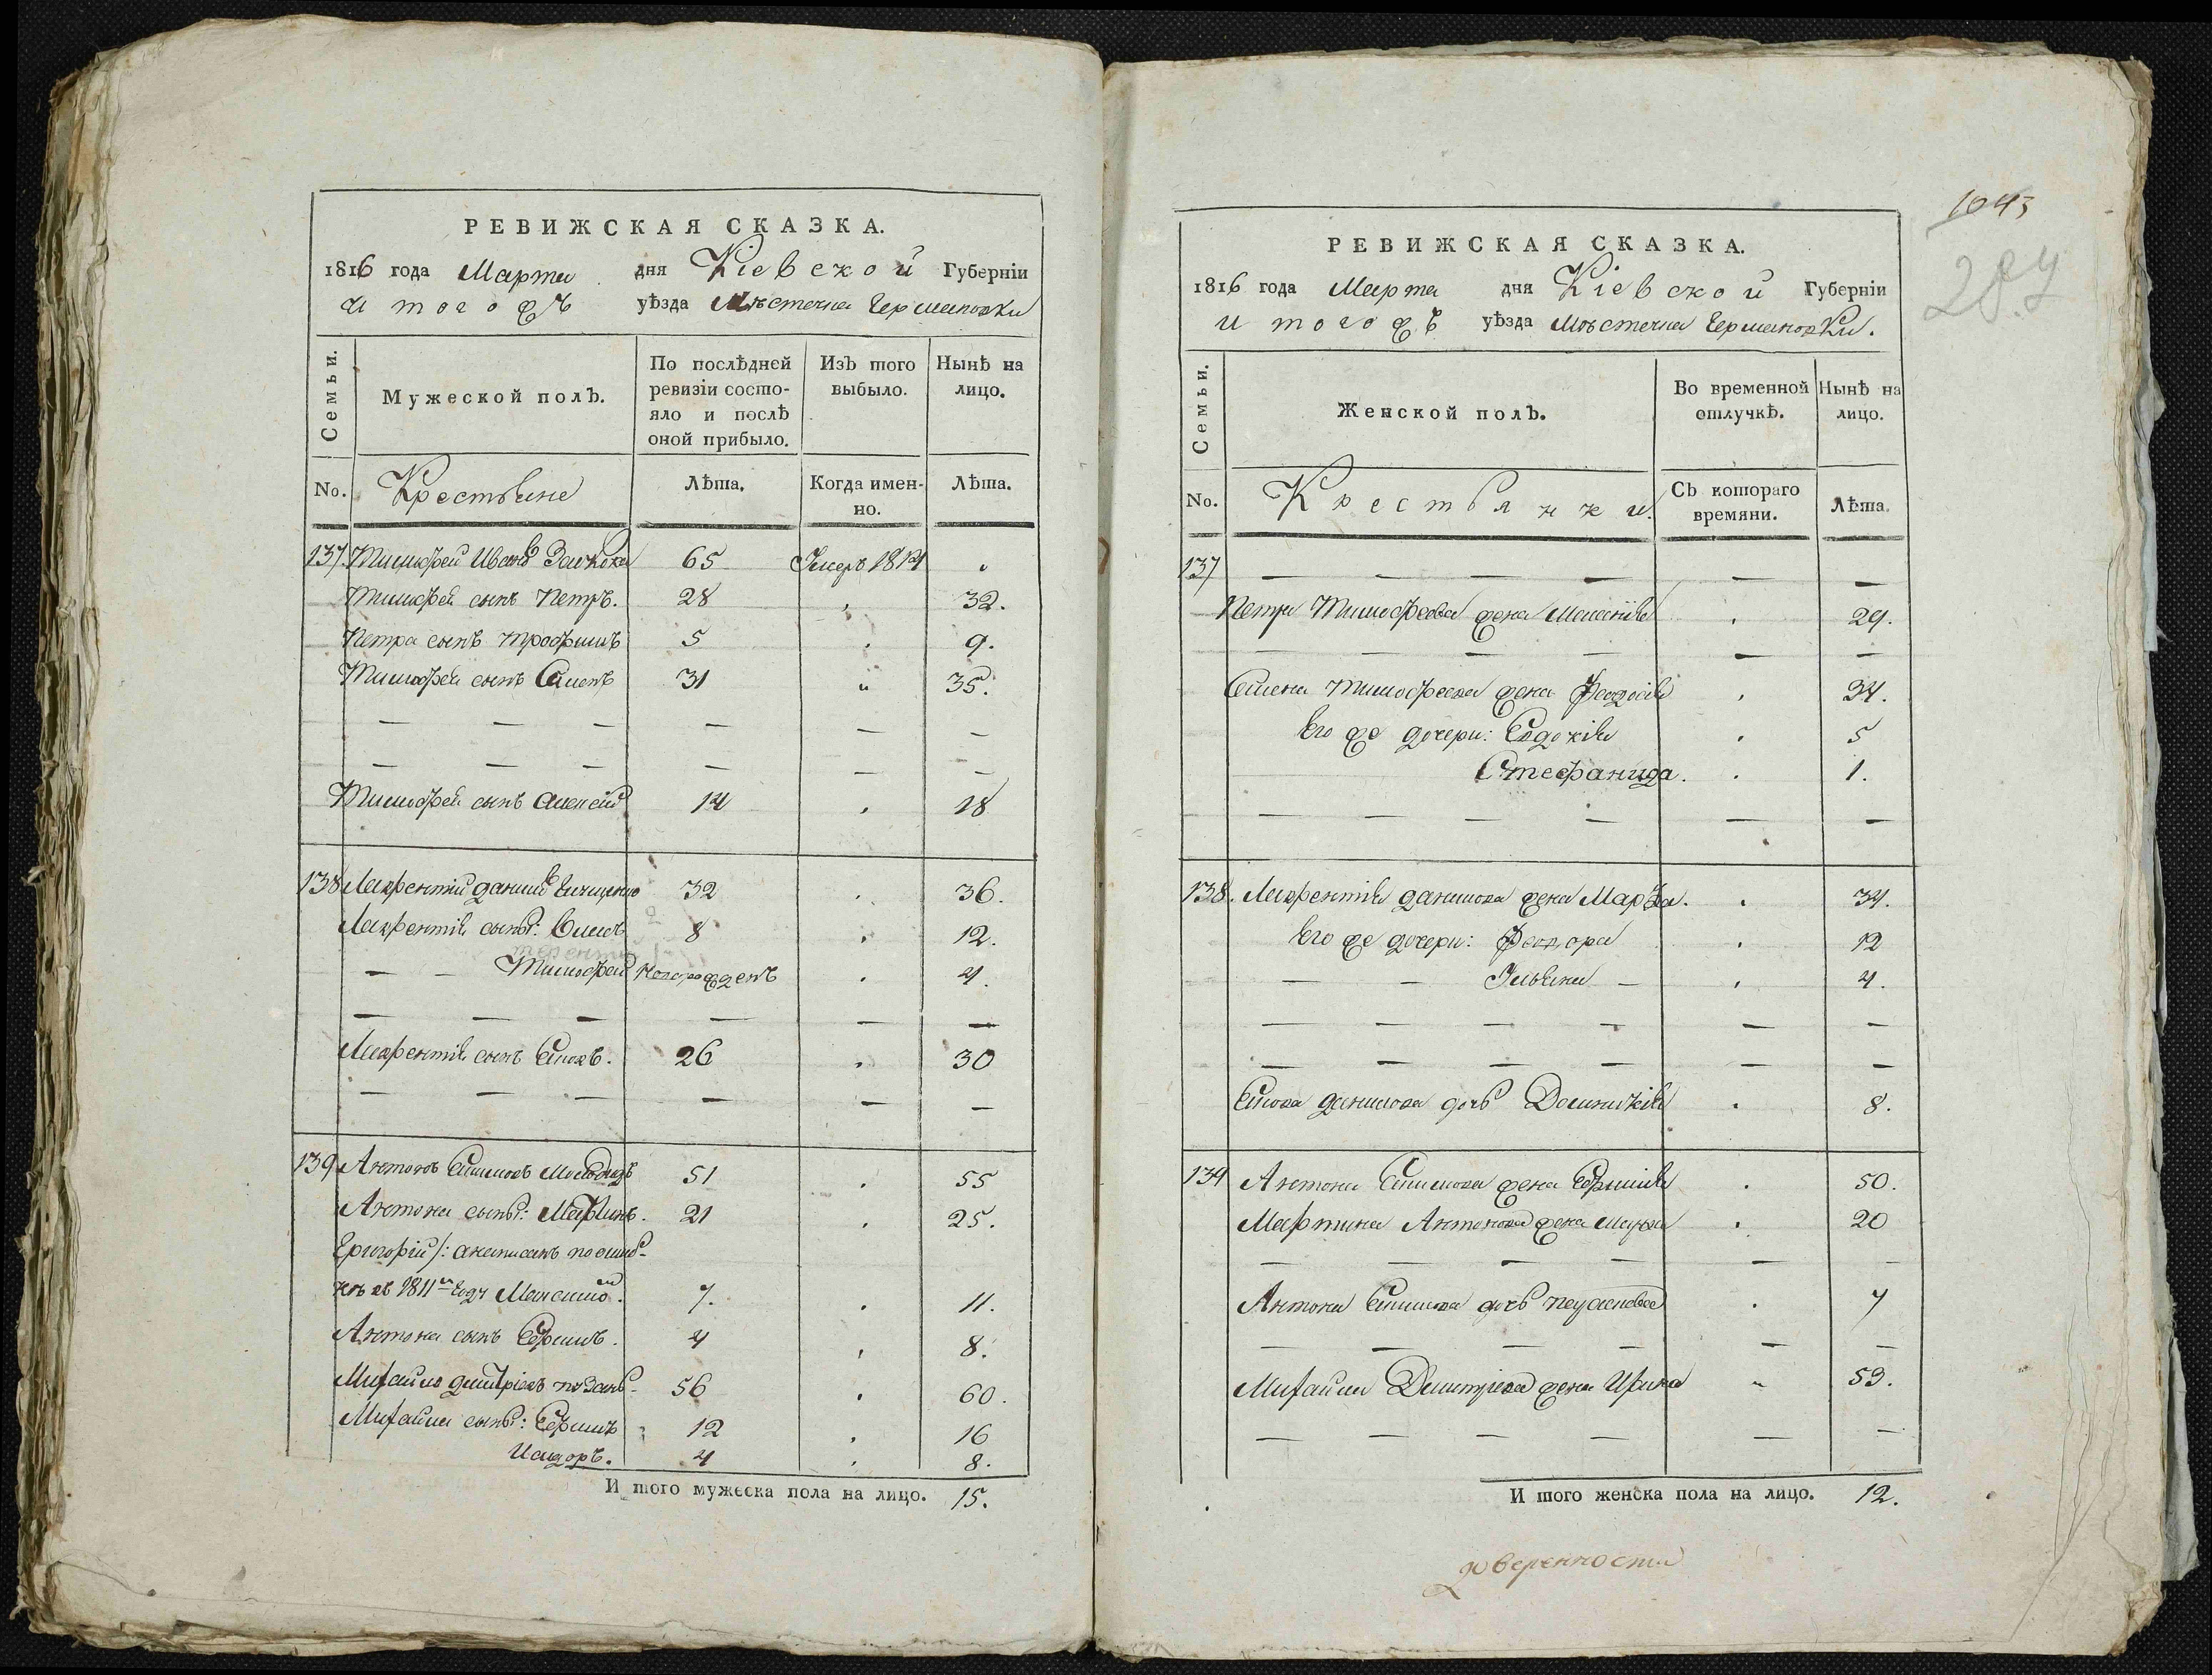 РЕВИЖСКАЯ СКАЗКА.
1816 года Марта дня Кіевской Губерніи
и тогожъ уѣзда Мѣстечка Германовки
Семьи.
Мужеской полъ.
По послѣдней ревизіи состояло и послѣ оной прибыло.
Изъ того выбыло.
Нынѣ на лицо.
No. Крестьяне Лѣта. Когда именно. Лѣта.
137. Тимофей Ивановъ 65 Умеръ 1814
Тимофея сынъ Петръ. 28 32.
Петра сынъ Трофимъ 5 9.
Тимофея сынъ Семенъ 31 35.
Тимофея сынъ Алексей 14 18
138 Лаврентій Даниловъ 32 36.
Лаврентія сыны: 8 12.
Тимофей новорожденъ 4.
Лаврентія сынъ 26 30
139 Антонъ 51 55
Антона сыны: Мартинъ. 21 25.
Григорій /: а написанъ по ошиб-
кѣ въ 1811м году 7. 11.
Антона сынъ Ефимъ. 4 8.
Михайло Дмитріевъ 56 60.
Михайла сыны: Ефимъ 12 16
Исидоръ. 4 8.
И того мужеска пола на лицо. 15.
1043
287
РЕВИЖСКАЯ СКАЗКА.
1816 года Марта дня Кіевской Губерніи
и тогожъ уѣзда Мѣстечка Германовки.
Семьи.
Женской полъ.
Во временной отлучкѣ.
Нынѣ на лицо.
No. Крестьянки. Съ котораго времяни. Лѣта.
137
Петра Тимофеева жена Меланія 29.
Семена Тимофеева жена Феодосія 34.
Его же дочери: Евдокія 5
Стефанида. 1.
138. Лаврентія Данилова жена Марфа. 34.
Его же дочери: Феодора 12
Ульяна 4.
Данилова дочь Домникія 8.
139 Антона жена Ефимія 50.
Мартина Антонова жена 20
Антона дочь 7
Михайла Дмитріева жена Ирина 59.
И того женска пола на лицо. 12.